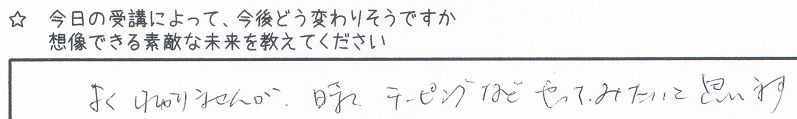 ☆ 今日の受講によって、今後どう変わりそうですか
想像できる素敵な未来を教えてください
よくわかりませんが、時々 テーピングなど やってみたいと思います